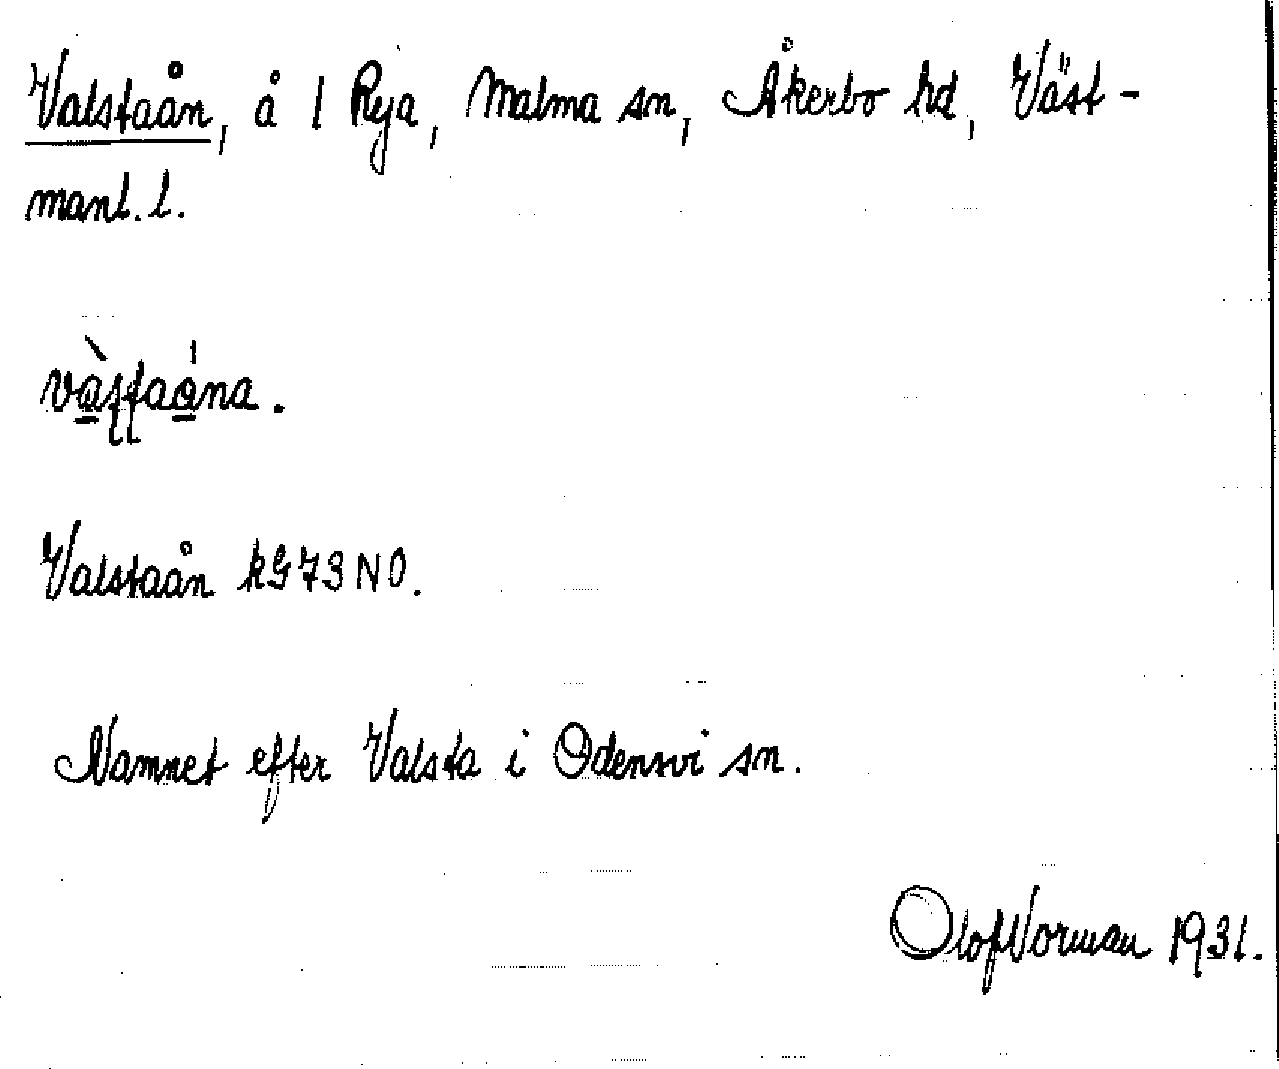 Valstaån, å l Rya, Malma sn, Åkerbo hd, Väst-
manl. l.
Valstaån kG73NO.
Namnet efter Valsta i Odensvi sn.
Olof Norman 1931.